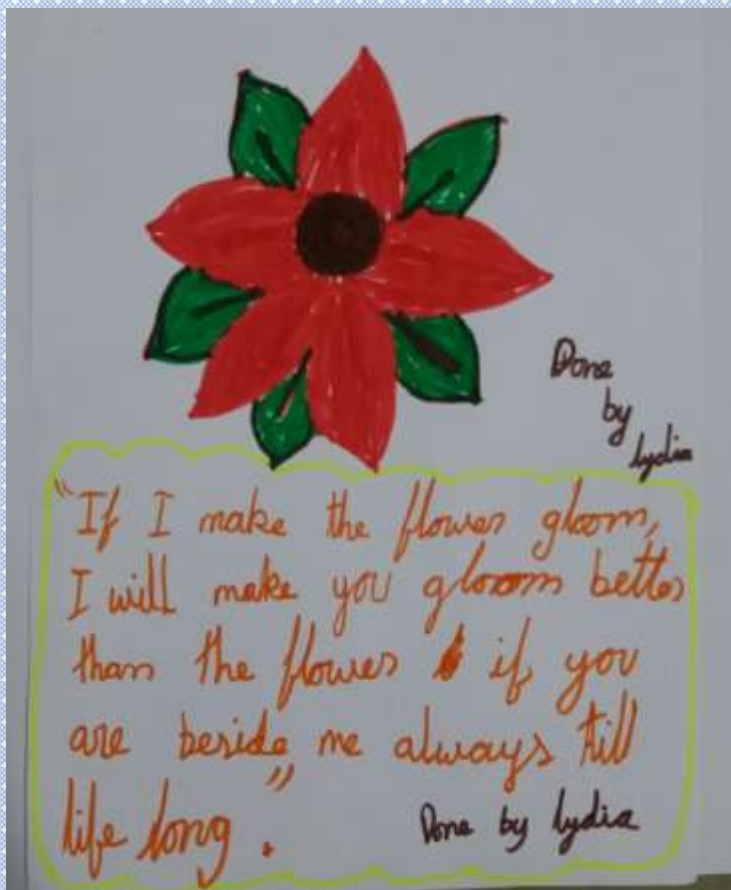 Done
by
lydia
"If I make the flower gloom,
I will make you gloom better
than the flower if you
are beside me always till
life long."
Done by lydia